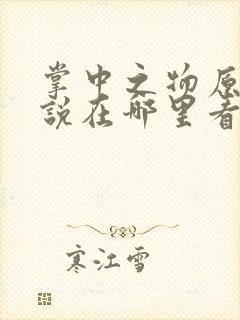 掌中之物原
说在哪里看
寒江雪